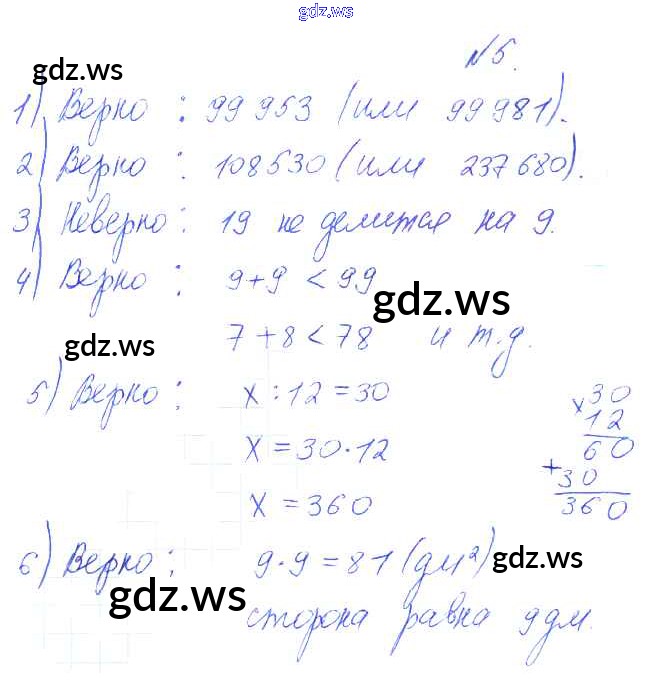 gdz.ws
№5.
gdz.ws
1) Верно : 99 953 (или 99 981).
2) Верно : 108530 (или 237 680).
3) Неверно: 19 не делится на 9.
4) Верно : 9+9 < 99
gdz.ws
7+8 < 78 и т.д.
gdz.ws
5) Верно : x : 12 = 30
x = 30·12
x = 360
×30
12
60
+30
360
6) Верно : 9·9 = 81 (дм²)
gdz.ws
gdz.ws
сторона равна 9 дм.